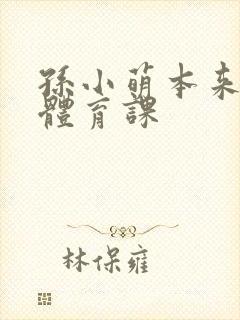 孫小萌本来
體育課
林保雍